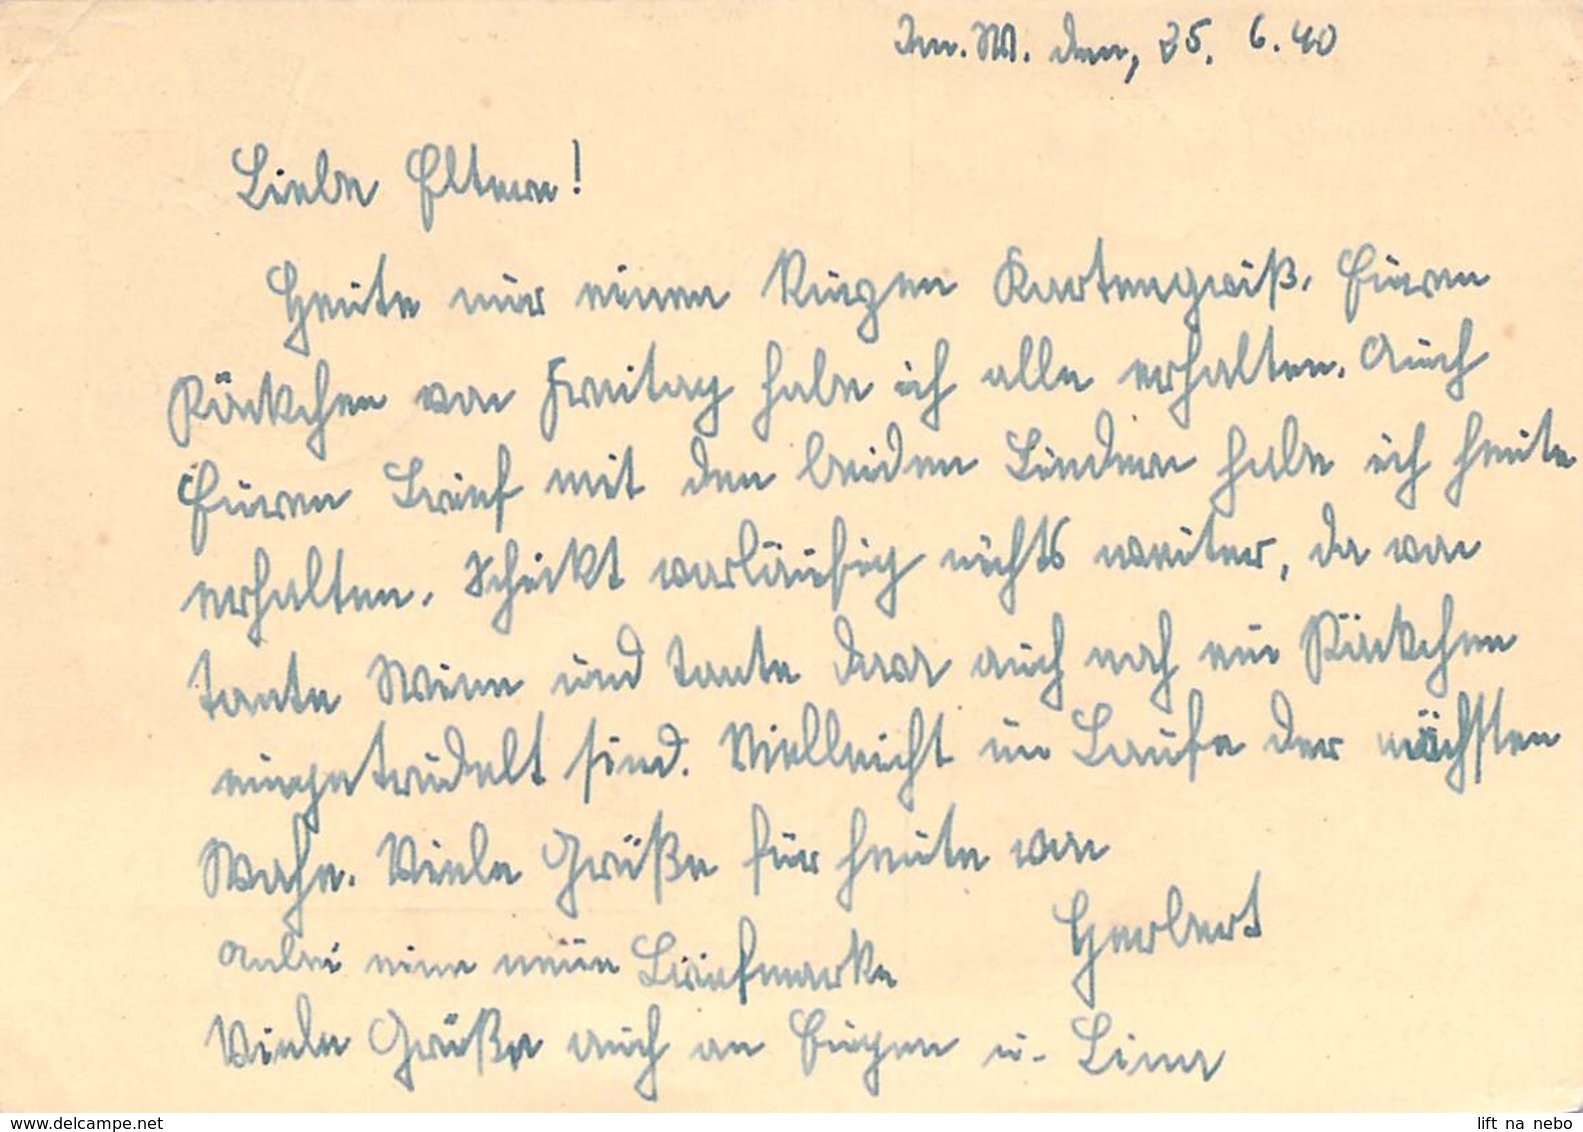 Im. W. den, 25. 6. 40
Liebe Eltern!
Heute nur einen kurzen Kartengruß. Euren
Päckchen von Freitag habe ich alle erhalten. Auch
Euren Brief mit den beiden Bindern habe ich heute
erhalten. Schickt vorläufig nichts weiter, da von
Tante Minna und Tante Dora auch noch ein Päckchen
eingetrudelt sind. Vielleicht im Laufe der nächsten
Woche. Viele Grüße für heute von
Herbert
Anbei eine neue Briefmarke
Viele Grüße auch an Eugen u. Lina
www.delcampe.net
lift na nebo